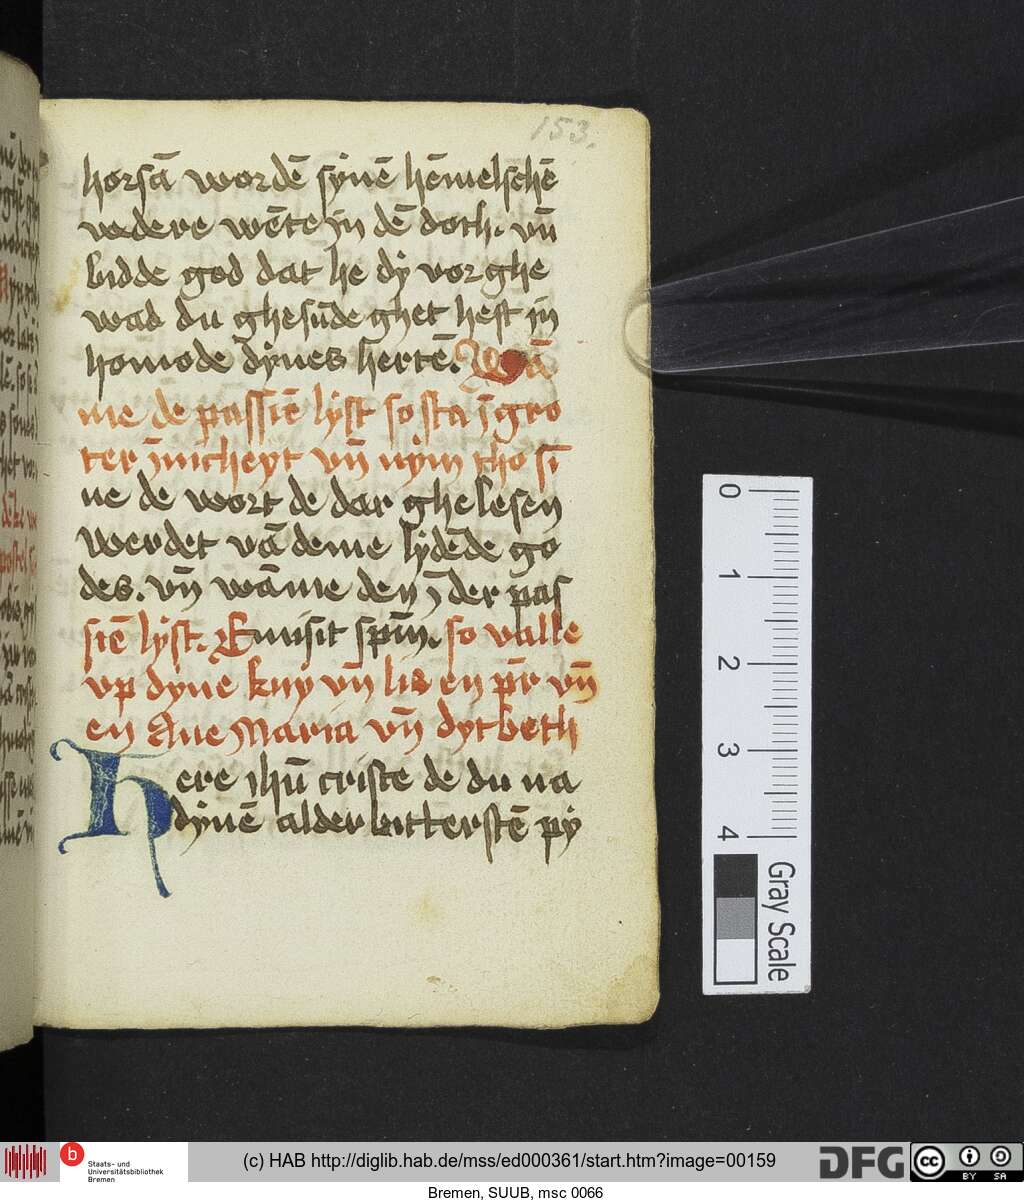 153.
horsā wordē synē hēmelschē
vadere wēte in dē doth. vn̄
bidde god dat he dy vorghe
wad du ghesūdeghet hest in
homode dynes hertē. Wā
me de passiē lyst so sta ī gro
ter īnicheyt vn̄ nym tho sī
ne de wort de dar ghelesen
werdet vā deme lydēde go
des. vn̄ wāme den ī der pas
siē lyst. Emisit spm̄. so valle
vp dyne kny vn̄ lis en pr̄ vn̄
en Aue Maria vn̄ dyt beth
Here ihū criste de du na
dynē alder bittterstē py
0 1 2 3 4
Gray Scale
b Staats- und
Universitätsbibliothek
Bremen
(c) HAB http://diglib.hab.de/mss/ed000361/start.htm?image=00159
DFG
cc BY SA
Bremen, SUUB, msc 0066